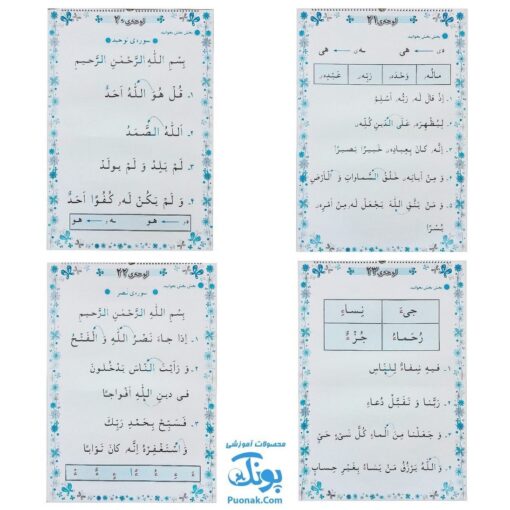 لوحه‌ی ۲۰
بخش بخش بخوانید
سوره‌ی توحید
بِسْمِ اللّٰهِ الرَّحْمٰنِ الرَّحیمِ
۱. قُلْ هُوَ اللّٰهُ اَحَدٌ
۲. اَللّٰهُ الصَّمَدُ
۳. لَمْ یَلِدْ وَ لَمْ یولَدْ
۴. وَ لَمْ یَکُنْ لَهُ کُفُوًا اَحَدٌ
هو
هو
لوحه‌ی ۲۱
بخش بخش بخوانید
هی
هی
مالُهُ وَحْدَهُ رَبِّهِ عَبْدِهِ
۱. اِذْ قالَ لَهُ رَبُّهُ اَسْلِمْ
۲. لِیُظْهِرَهُ عَلَی الدّینِ کُلِّهِ
۳. اِنَّهُ کانَ بِعِبادِهِ خَبیرًا بَصیرًا
۴. وَ مِنْ آیاتِهِ خَلْقُ السَّماواتِ وَ الْاَرْضِ
۵. وَ مَنْ یَتَّقِ اللّٰهَ یَجْعَلْ لَهُ مِنْ اَمْرِهِ
یُسْرًا
لوحه‌ی ۲۲
بخش بخش بخوانید
سوره‌ی نصر
بِسْمِ اللّٰهِ الرَّحْمٰنِ الرَّحیمِ
۱. اِذا جاءَ نَصْرُ اللّٰهِ وَ الْفَتْحُ
۲. وَ رَاَیْتَ النّاسَ یَدْخُلونَ
فی دینِ اللّٰهِ اَفْواجًا
۳. فَسَبِّحْ بِحَمْدِ رَبِّکَ
وَ اسْتَغْفِرْهُ اِنَّهُ کانَ تَوّابًا
لوحه‌ی ۲۳
بخش بخش بخوانید
جیءَ نِساءِ
رُحَماءُ جُزْءٌ
۱. فیهِ شِفاءٌ لِلنّاسِ
۲. رَبَّنا وَ تَقَبَّلْ دُعاءِ
۳. وَ جَعَلْنا مِنَ الْماءِ کُلَّ شَیْءٍ حَیٍّ
۴. وَ اللّٰهُ یَرْزُقُ مَنْ یَشاءُ بِغَیْرِ حِسابٍ
محصولات آموزشی
پونک
Puonak.Com